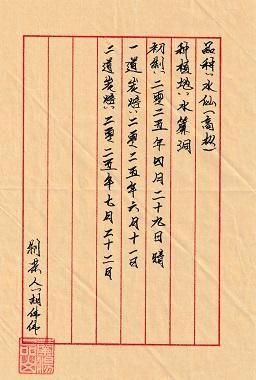 品种：水仙（高枞）
种植地：水帘洞
初制：二零二五年四月二十九日晴
一道炭焙：二零二五年六月十一日
二道炭焙：二零二五年七月二十二日
制茶人：胡伟伟